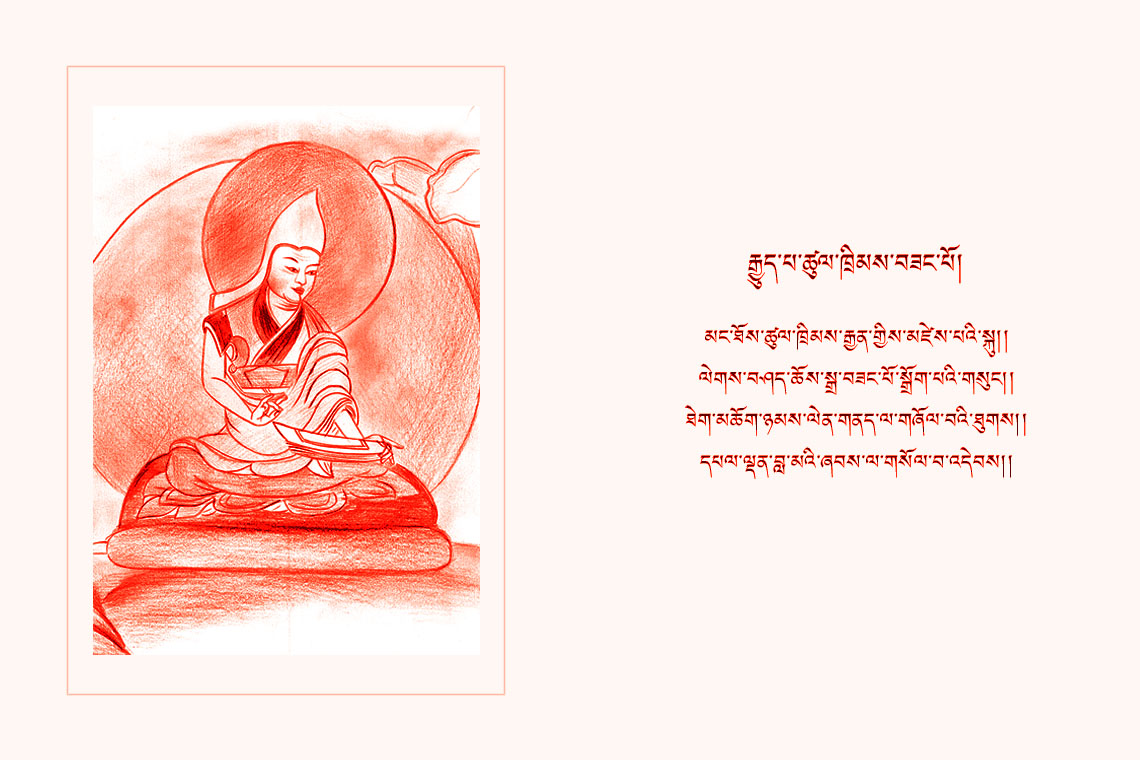 རྒྱུད་པ་ཚུལ་ཁྲིམས་བཟང་པོ།
མང་ཐོས་ཚུལ་ཁྲིམས་རྒྱན་གྱིས་མཛེས་པའི་སྐུ།།
ལེགས་བཤད་ཆོས་སྒྲ་བཟང་པོ་སྒྲོག་པའི་གསུང་།།
ཐེག་མཆོག་ཉམས་ལེན་གནད་ལ་གཞོལ་བའི་ཐུགས།།
དཔལ་ལྡན་བླ་མའི་ཞབས་ལ་གསོལ་བ་འདེབས།།